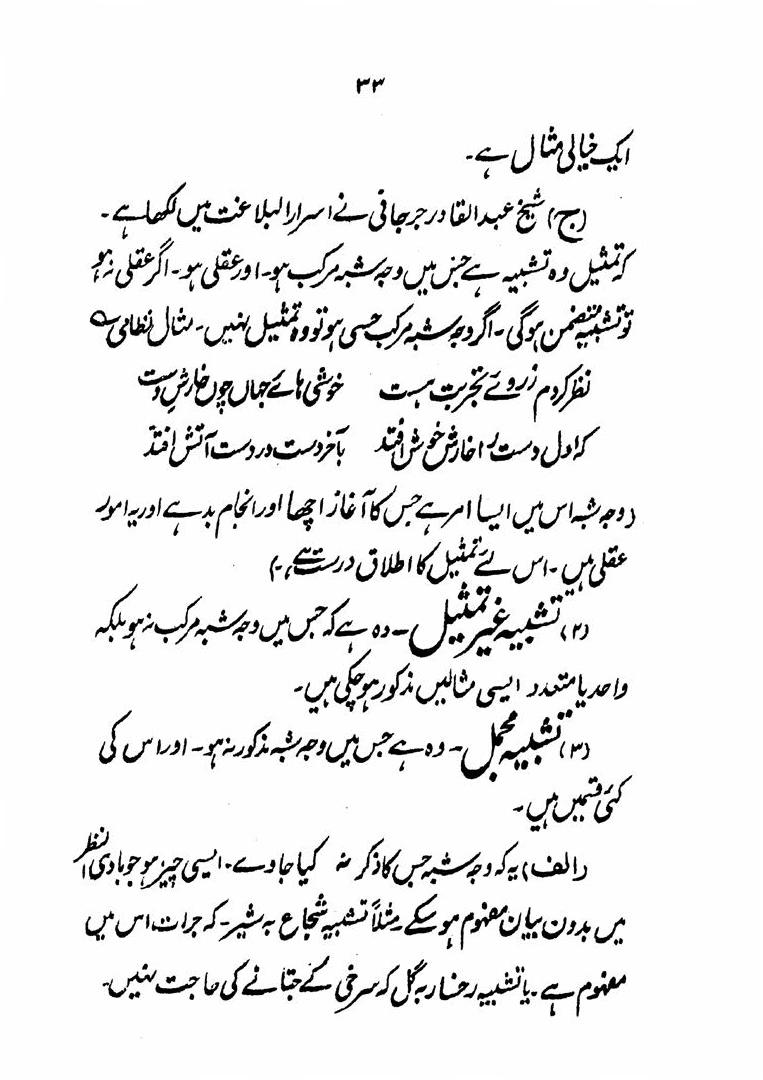 ۳۳
ایک خیالی مثال ہے۔
(ج) شیخ عبدالقادر جرجانی نے اسرارالبلاغت میں لکھا ہے۔
کہ تمثیل وہ تشبیہ ہے جس میں وجہ شبہ مرکب ہو۔ اور عقلی ہو۔ اگر عقلی نہ ہو
تو تشبیہ متضمن ہوگی۔ اگر وجہ شبہ مرکب حسی ہو تو وہ تمثیل نہیں۔ مثال نظامی ؎
نظر کردم ز روئے تجربت ہست خوشی ہائے جہاں چوں خارش دست
کہ اول دست را خارش خوش افتد بآخر دست در دست آتش افتد
(وجہ شبہ اس میں ایسا امر ہے جس کا آغاز اچھا اور انجام بد ہے اور یہ امور
عقلی ہیں۔ اس لئے تمثیل کا اطلاق درست ہے۔)
(۲) تشبیہ غیر تمثیل۔ وہ ہے کہ جس میں وجہ شبہ مرکب نہ ہو بلکہ
واحد یا متعدد ایسی مثالیں مذکور ہوچکی ہیں۔
(۳) تشبیہ مجمل۔ وہ ہے جس میں وجہ شبہ مذکور نہ ہو۔ اور اس کی
کئی قسمیں ہیں۔
(الف) یہ کہ وجہ شبہ جس کا ذکر نہ کیا جاوے۔ ایسی چیز ہو جو بادی النظر
میں بدون بیان مفہوم ہو سکے۔ مثلاً تشبیہ شجاع بہ شیر۔ کہ جرات اس میں
مفہوم ہے۔ یا تشبیہ رخسار بہ گل کہ سرخی کے جتانے کی حاجت نہیں۔